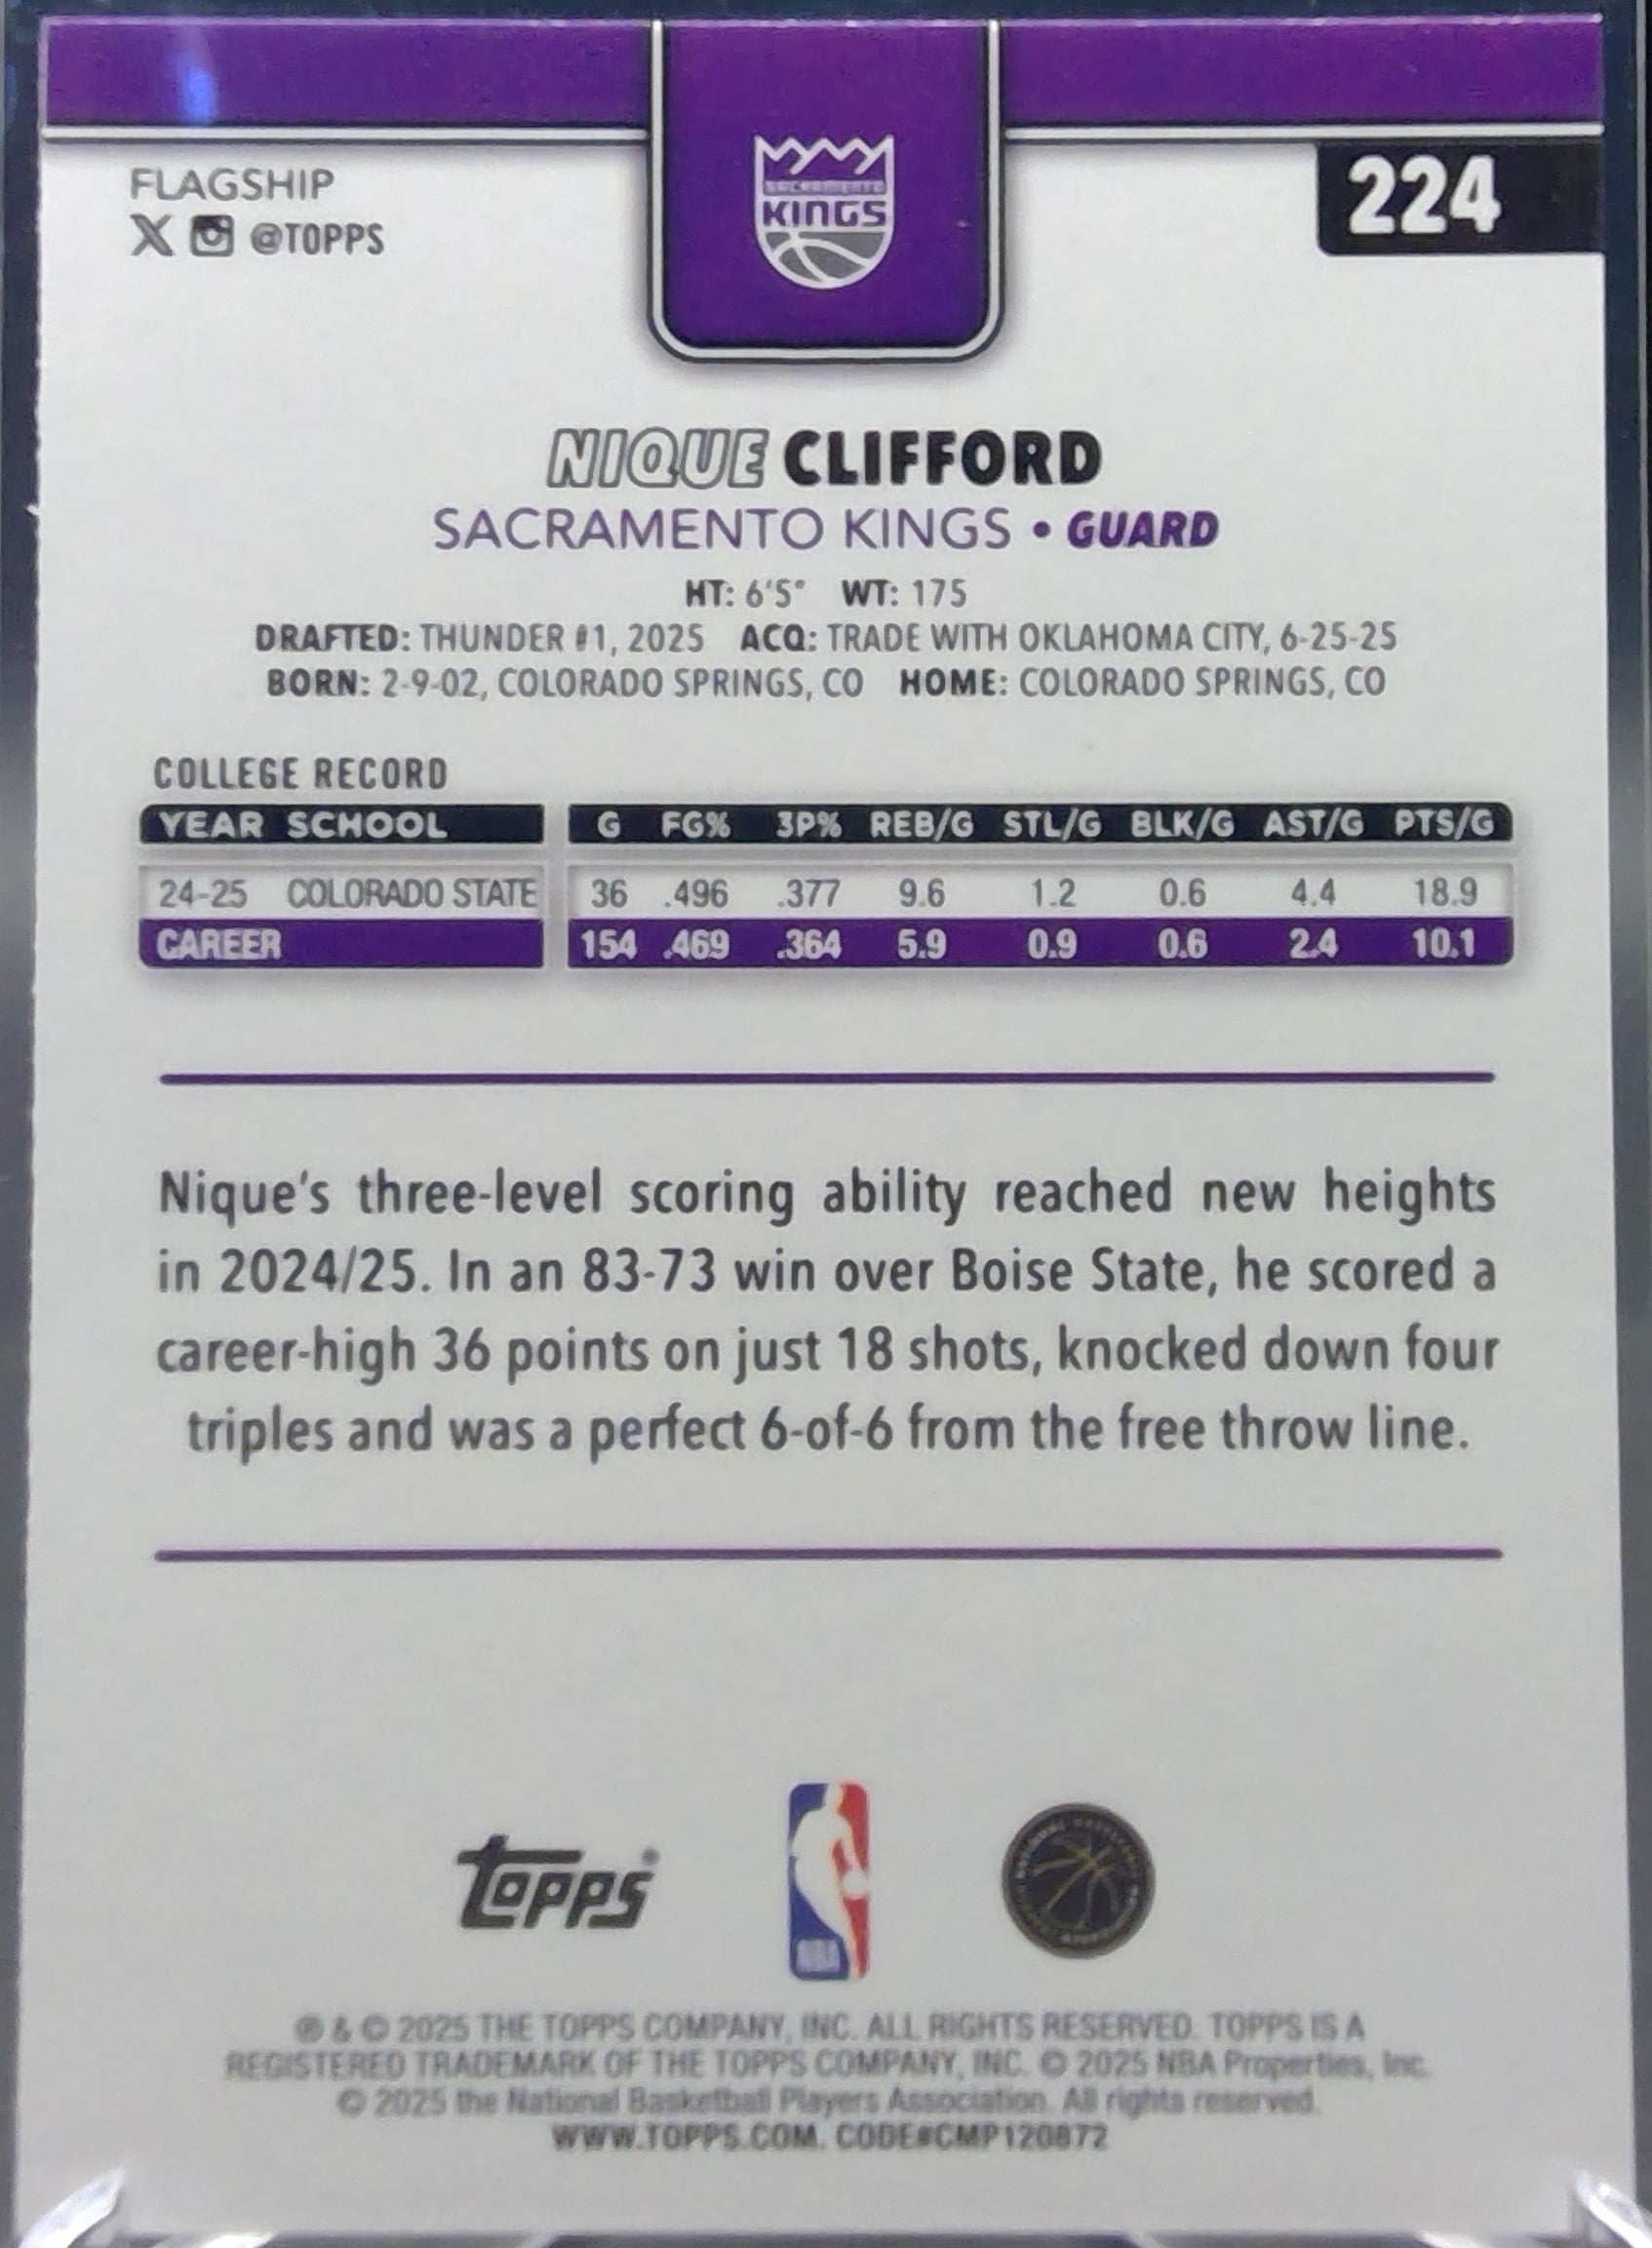 SACRAMENTO
KINGS
FLAGSHIP
X @TOPPS
224
NIQUE CLIFFORD
SACRAMENTO KINGS • GUARD
HT: 6'5" WT: 175
DRAFTED: THUNDER #1, 2025 ACQ: TRADE WITH OKLAHOMA CITY, 6-25-25
BORN: 2-9-02, COLORADO SPRINGS, CO HOME: COLORADO SPRINGS, CO
COLLEGE RECORD
YEAR SCHOOL G FG% 3P% REB/G STL/G BLK/G AST/G PTS/G
24-25 COLORADO STATE 36 .496 .377 9.6 1.2 0.6 4.4 18.9
CAREER 154 .469 .364 5.9 0.9 0.6 2.4 10.1
Nique's three-level scoring ability reached new heights
in 2024/25. In an 83-73 win over Boise State, he scored a
career-high 36 points on just 18 shots, knocked down four
triples and was a perfect 6-of-6 from the free throw line.
Topps®
NBA
® & © 2025 THE TOPPS COMPANY, INC. ALL RIGHTS RESERVED. TOPPS IS A
REGISTERED TRADEMARK OF THE TOPPS COMPANY, INC. © 2025 NBA Properties, Inc.
© 2025 the National Basketball Players Association. All rights reserved.
WWW.TOPPS.COM. CODE#CMP120872